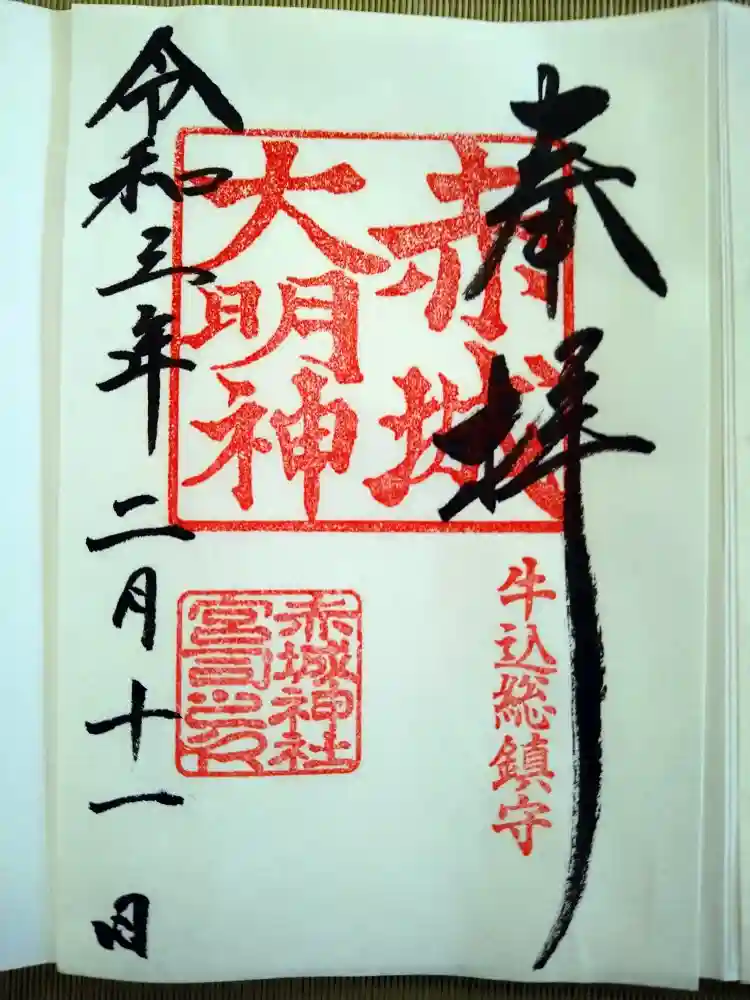 奉拝
赤城
大明神
牛込総鎮守
赤城神社
宮司之印
令和三年 二月十一日